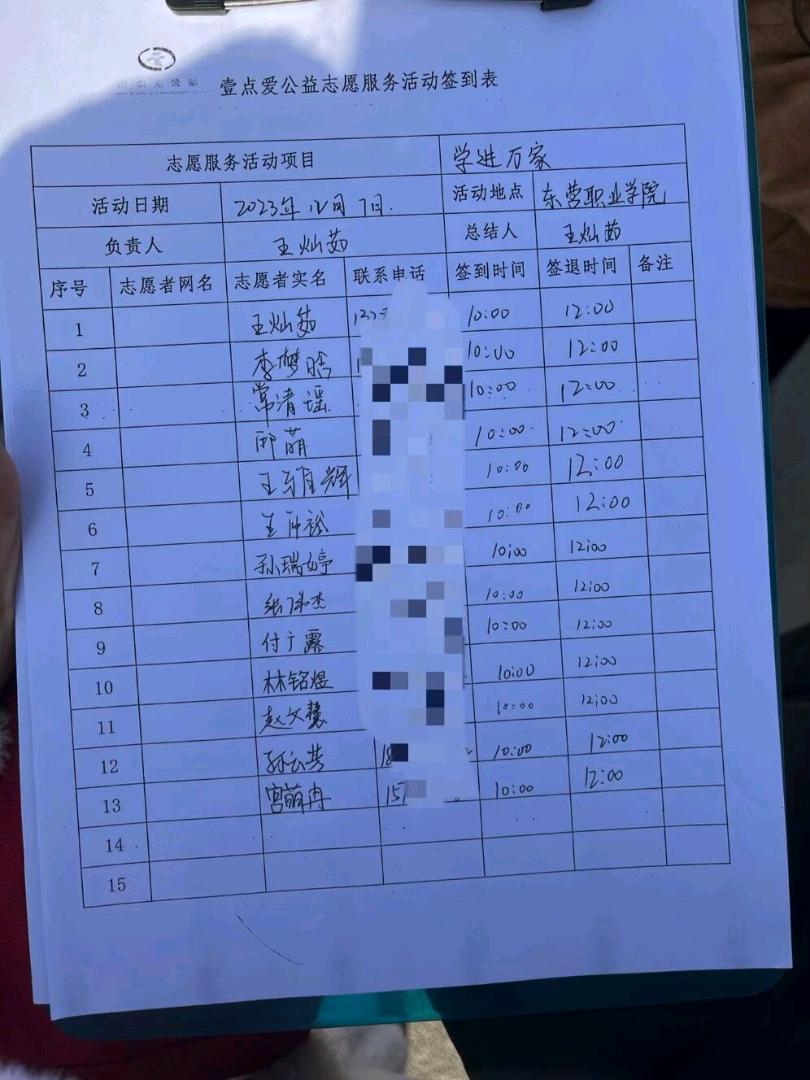 壹点爱公益志愿服务活动签到表
志愿服务活动项目 学进万家
活动日期 2023年12月7日. 活动地点 东营职业学院
负责人 王灿茹 总结人 王灿茹
序号 志愿者网名 志愿者实名 联系电话 签到时间 签退时间 备注
1 王灿茹 10:00 12:00
2 李梦晗 10:00 12:00
3 常清谣 10:00 12:00
4 邴萌 10:00 12:00
5 10:00 12:00
6 10:00 12:00
7 孙瑞婷 10:00 12:00
8 10:00 12:00
9 付广露 10:00 12:00
10 林铭煜 10:00 12:00
11 赵文慧 10:00 12:00
12 孙云芳 18 10:00 12:00
13 宫萌冉 157 10:00 12:00
14
15